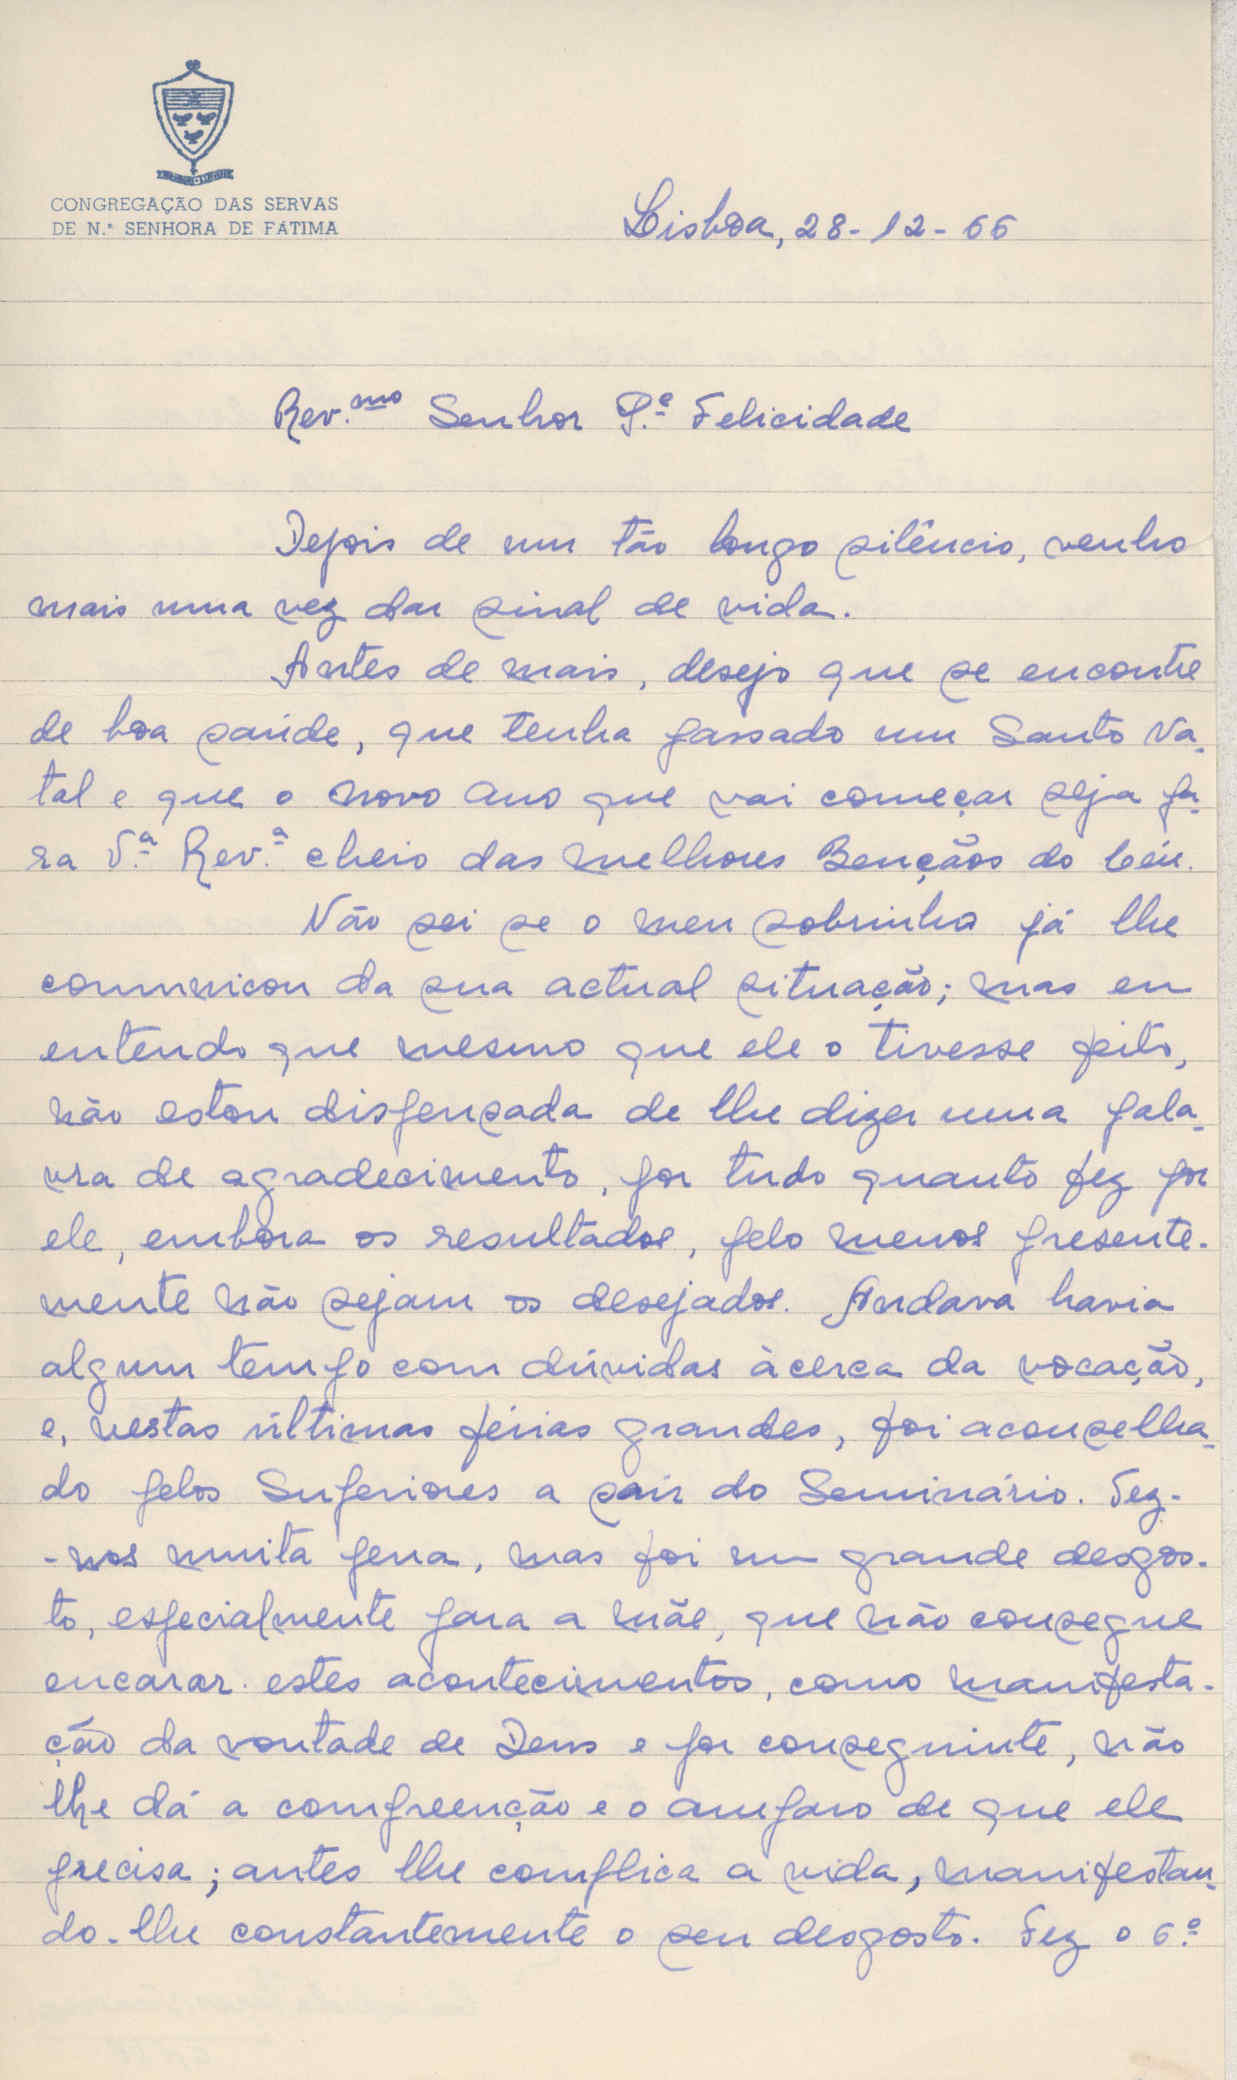 CONGREGAÇÃO DAS SERVAS
DE N.ª SENHORA DE FÁTIMA
Lisboa, 28-12-66
Rev.mo Senhor P.e Felicidade
Depois de um tão longo silêncio, venho
mais uma vez dar sinal de vida.
Antes de mais, desejo que se encontre
de boa saúde, que tenha passado um Santo Na-
tal e que o novo ano que vai começar seja pa-
ra V.ª Rev.ª cheio das melhores Bençãos do Céu.
Não sei se o meu sobrinho já lhe
comunicou da sua actual situação; mas eu
entendo que mesmo que ele o tivesse feito,
não estou dispensada de lhe dizer uma pala-
vra de agradecimento, por tudo quanto fez por
ele, embora os resultados, pelo menos presente-
mente não sejam os desejados. Andava havia
algum tempo com dúvidas àcerca da vocação,
e, nestas últimas férias grandes, foi aconselha-
do pelos Superiores a sair do Seminário. Fez-
-nos muita pena, mas foi um grande desgos-
to, especialmente para a mãe, que não consegue
encarar estes acontecimentos, como manifesta-
ção da vontade de Deus e por conseguinte, não
lhe dá a compreenção e o amparo de que ele
precisa; antes lhe complica a vida, manifestan-
do-lhe constantemente o seu desgosto. Fez o 6.º